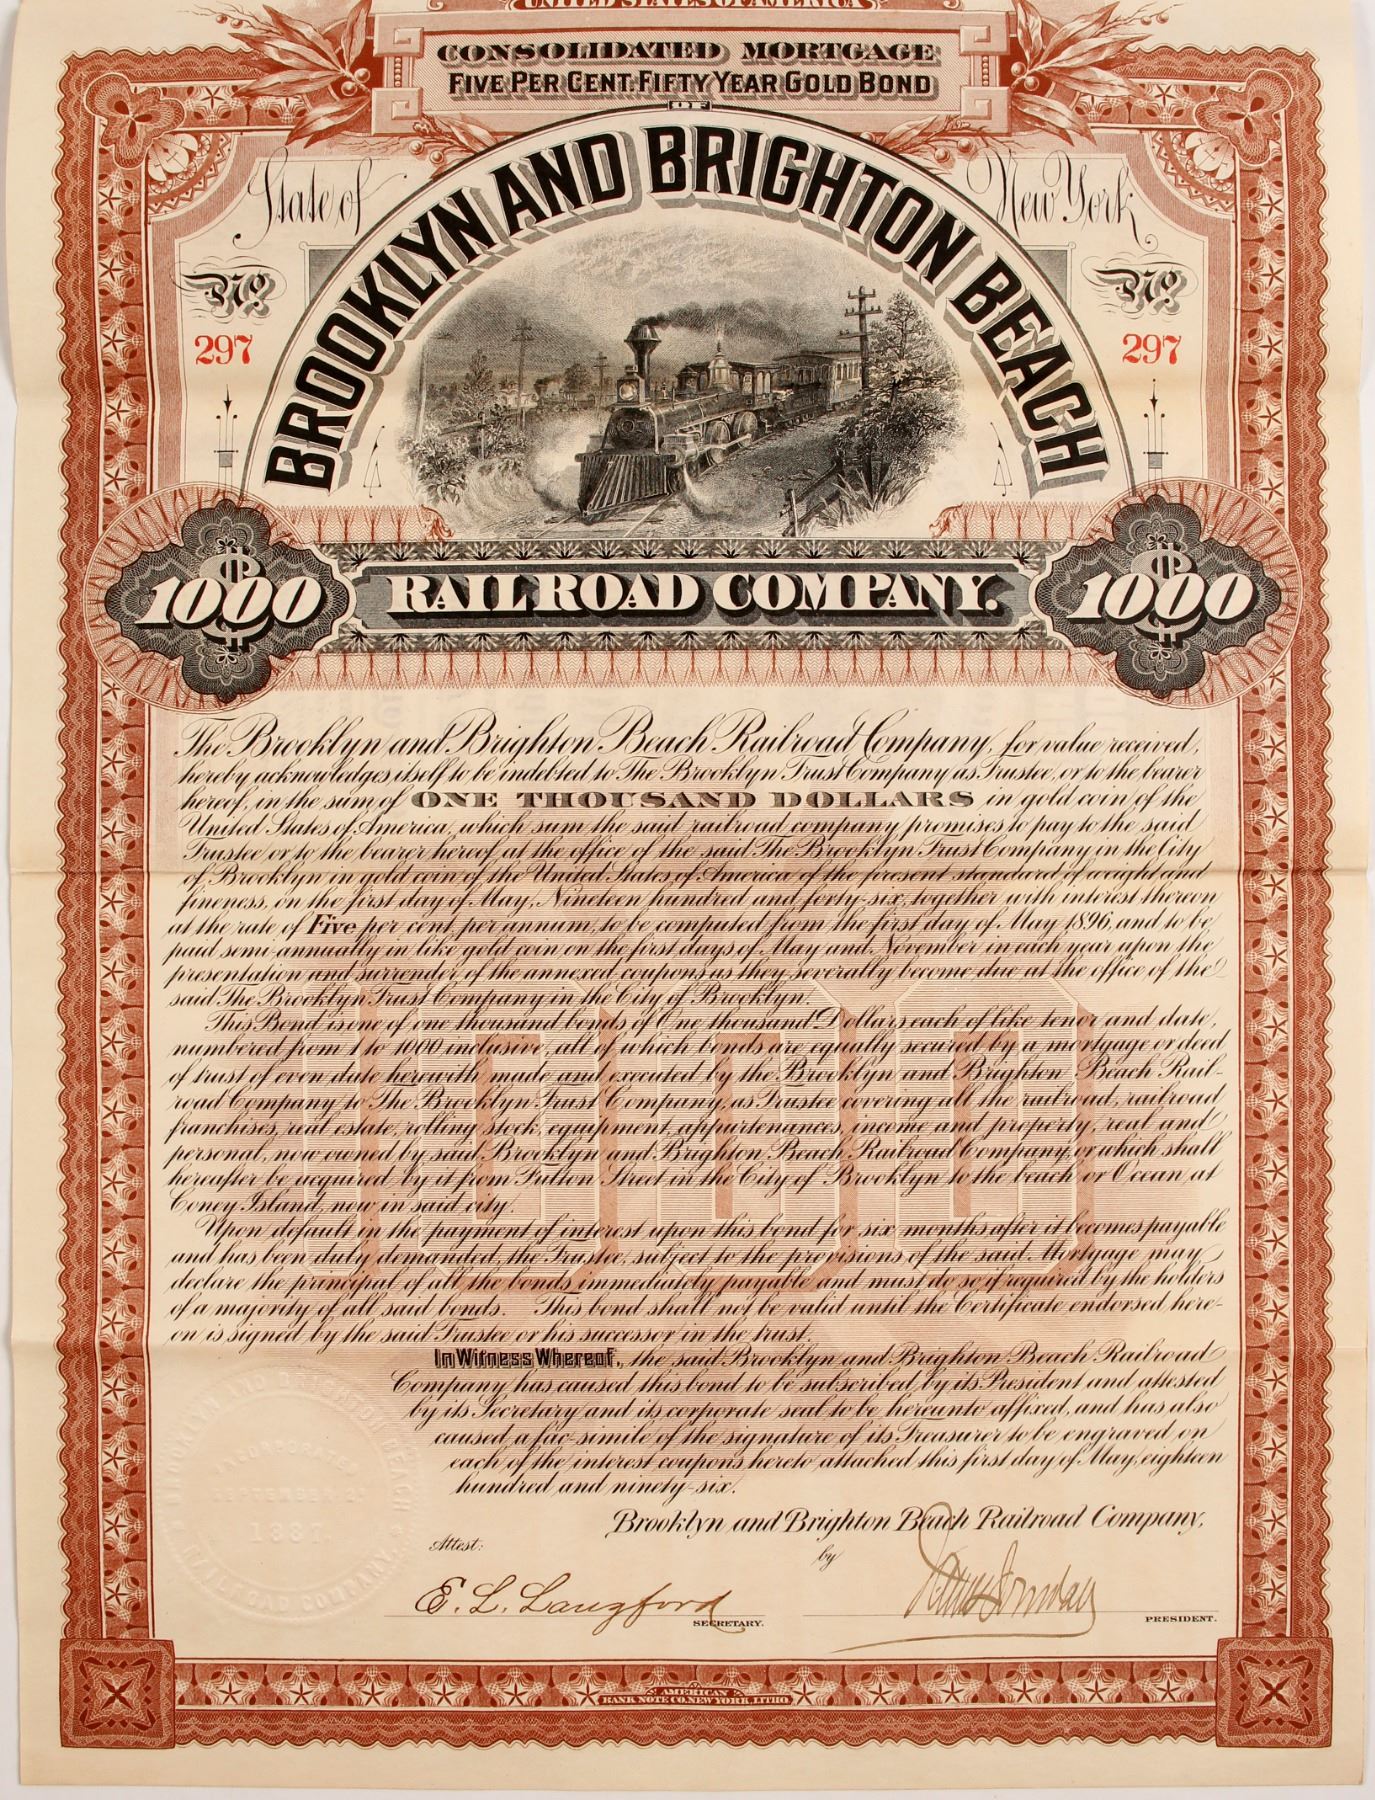 UNITED STATES OF AMERICA
CONSOLIDATED MORTGAGE
FIVE PER CENT. FIFTY YEAR GOLD BOND
OF
State of New York
BROOKLYN AND BRIGHTON BEACH
No. No.
297 297
$1000 RAILROAD COMPANY. $1000
The Brooklyn and Brighton Beach Railroad Company, for value received,
hereby acknowledges itself to be indebted to The Brooklyn Trust Company as Trustee, or to the bearer
hereof, in the sum of ONE THOUSAND DOLLARS in gold coin of the
United States of America, which sum the said railroad company promises to pay to the said
Trustee or to the bearer hereof at the office of the said The Brooklyn Trust Company in the City
of Brooklyn in gold coin of the United States of America of the present standard of weight and
fineness, on the first day of May, Nineteen hundred and forty-six, together with interest thereon
at the rate of Five per cent, per annum, to be computed from the first day of May 1896, and to be
paid semi-annually in like gold coin on the first days of May and November in each year upon the
presentation and surrender of the annexed coupons as they severally become due at the office of the
said The Brooklyn Trust Company in the City of Brooklyn.
This Bond is one of one thousand bonds of One thousand Dollars each of like tenor and date,
numbered from 1 to 1000 inclusive, all of which bonds are equally secured by a mortgage or deed
of trust of even date herewith made and executed by the Brooklyn and Brighton Beach Rail-
road Company to The Brooklyn Trust Company, as Trustee covering all the railroad, railroad
franchises, real estate, rolling stock, equipment, appurtenances, income and property, real and
personal, now owned by said Brooklyn and Brighton Beach Railroad Company, or which shall
hereafter be acquired by it from Fulton Street in the City of Brooklyn to the beach or Ocean at
Coney Island, now in said city.
Upon default in the payment of interest upon this bond for six months after it becomes payable
and has been duly demanded, the Trustee, subject to the provisions of the said Mortgage may
declare the principal of all the bonds immediately payable and must do so if required by the holders
of a majority of all said bonds. This bond shall not be valid until the Certificate endorsed here-
on is signed by the said Trustee or his successor in the trust.
In Witness Whereof, the said Brooklyn and Brighton Beach Railroad
Company has caused this bond to be subscribed by its President and attested
by its Secretary and its corporate seal to be hereunto affixed, and has also
caused a fac-simile of the signature of its Treasurer to be engraved on
each of the interest coupons hereto attached this first day of May, eighteen
hundred and ninety-six.
Brooklyn and Brighton Beach Railroad Company,
Attest: by
E. L. Langford
SECRETARY. PRESIDENT.
BROOKLYN AND BRIGHTON BEACH RAILROAD COMPANY
INCORPORATED
SEPTEMBER
1887.
AMERICAN
BANK NOTE CO. NEW YORK, LITHO.